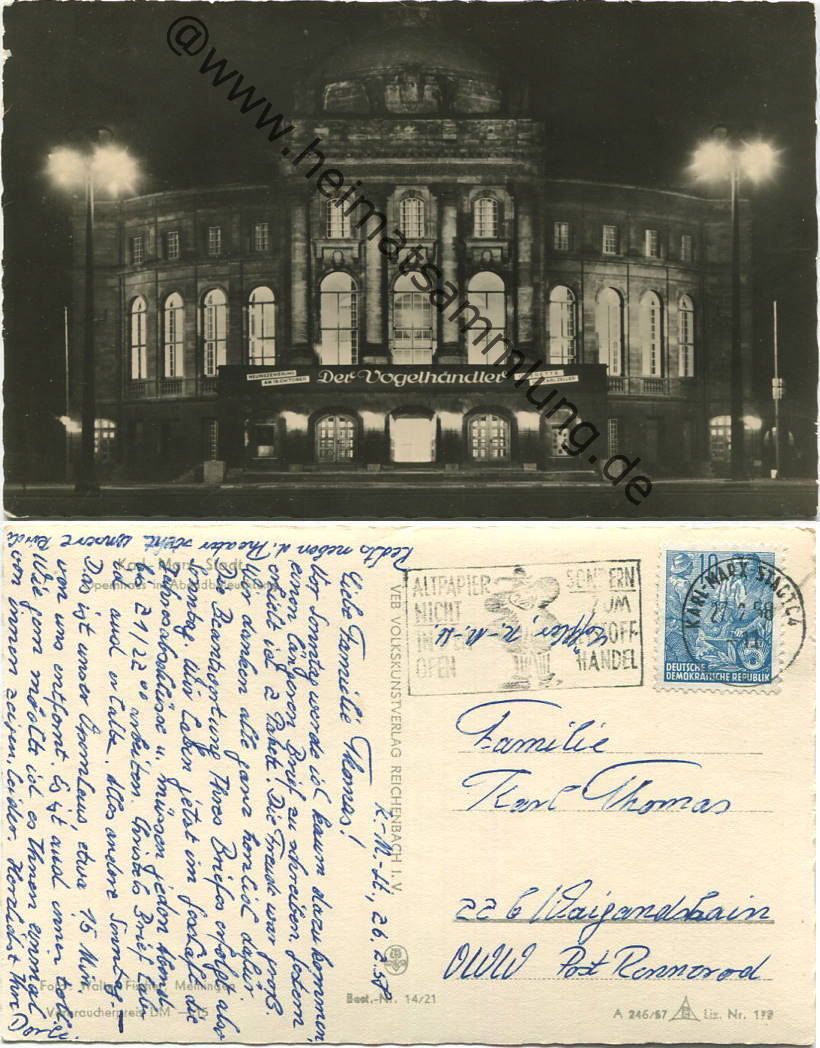 @www.heimatsammlung.de
NEUINSZENIERUNG
AM 18. OKTOBER
Der Vogelhändler
OPERETTE
CARL ZELLER
Karl-Marx-Stadt
Opernhaus in Abendbeleuchtung
K.-M.-St., 26.2.58
Liebe Familie Thomas!
Vor Sonntag werde ich kaum dazu kommen,
einen längeren Brief zu schreiben. Gestern
erhielt ich 2 Pakete. Die Freude war groß.
Wir danken alle ganz herzlich dafür.
Die Beantwortung Ihres Briefes erfolgt also
Sonntag. Wir haben jetzt im Geschäft die
Jahresabschlüsse u. müssen jeden Abend
bis 21/22 00 arbeiten. Christels Brief habe
ich auch erhalten. Alles andere Sonntag.
Das ist unser Opernhaus, etwa 15 Min.
von uns entfernt. Es ist auch immer
Wie gern möchte ich es Ihnen einmal
von innen zeigen, leider. Herzlichst Ihre
Doris
Rechts neben d. Theater steht unsere
Foto: Walter Fischer, Meiningen
Verbraucherpreis DM -,15
VEB VOLKSKUNSTVERLAG REICHENBACH I. V.
Best.-Nr. 14/21
ALTPAPIER
NICHT
IN DEN
OFEN
SONDERN
ZUM
ROHSTOFF-
HANDEL
KARL-MARX-STADT C4
27.2.58
10
DEUTSCHE
DEMOKRATISCHE REPUBLIK
Familie
Karl Thomas
22b Waigandshain
üWW Post Rennerod
A 246/57 Liz. Nr.